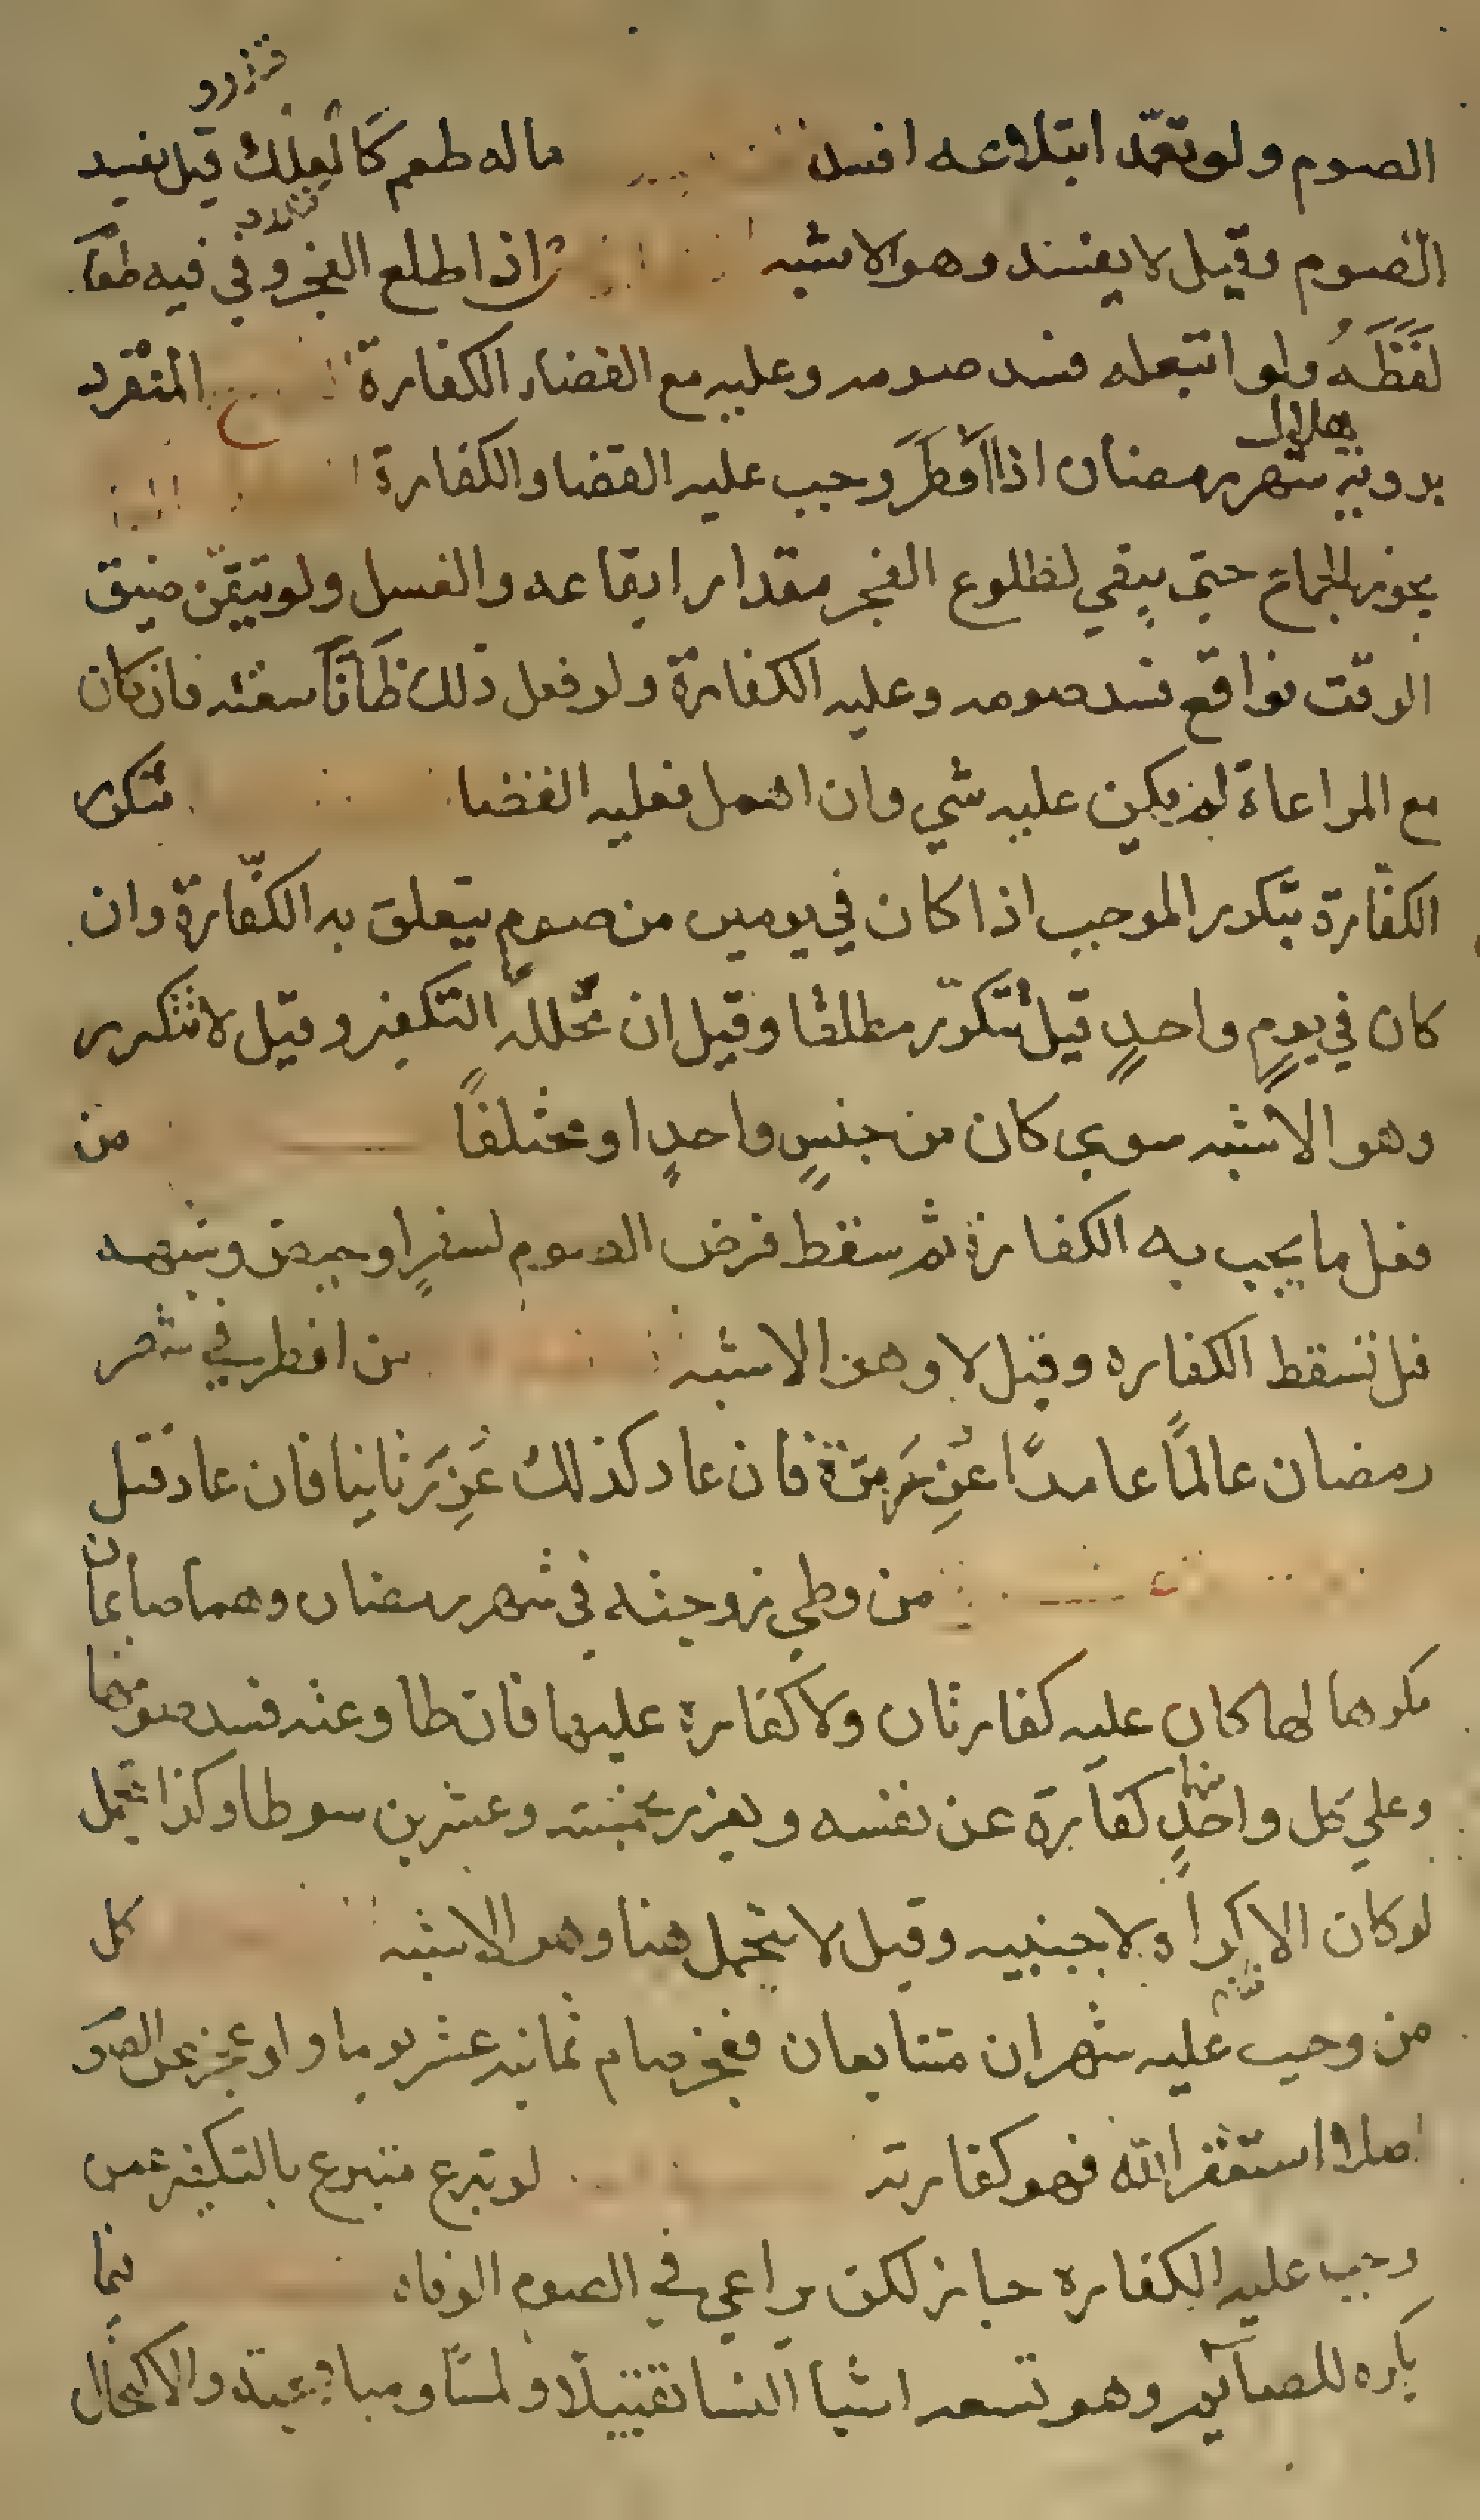 الصوم ولو تعمّد ابتلاعه افسد ماله طعم كالعلك قيل يفسد
الصوم وقيل لا يفسد وهو الاشبه اذا طلع الفجر وفي فيه طعام
لفظه ولو ابتعله فسد صومه وعليه مع القضاء الكفارة المنفرد
بروية هلال شهر رمضان اذا افطر وجب عليه القضا والكفارة
يجوز الجماع حتى يبقي لطلوع الفجر مقدار ايقاعه والغسل ولو تيقّن ضيق
الوقت فواقع فسد صومه وعليه الكفارة ولو فعل ذلك ظانّاً سعته فان كان
مع المراعاة لم يكن عليه شي وان اهمل فعليه القضا تتكرر
الكفّارة بتكرر الموجب اذا كان في يومين من صومٍ يتعلق به الكفّارة وان
كان في يومٍ واحدٍ قيل تتكرّر مطلقا وقيل ان تخلله التكفير وقيل لا تتكرر
وهو الاشبه سوي كان من جنسٍ واحدٍ او مختلفاً من
فعل ما يجب به الكفارة ثم سقط فرض الصوم لسفرٍ او حيض وشبهه
قيل تسقط الكفاره وقيل لا وهو الاشبه من افطر في شهر
رمضان عالماً عامداً عُزِّرَ مرّة فان عاد كذلك عُزِّرَ ثانيا فان عاد قتل
من وطي زوجته في شهر رمضان وهما صايمان
مكرها لها كان عليه كفارتان ولا كفارة عليها فان طاوعته فسد صومهما
وعلي كل واحدٍ منهما كفارة عن نفسه ويعزر بخمسة وعشرين سوطا وكذا تحمل
لو كان الاكراه لاجنبيه وقيل لا يتحمل هنا وهو الاشبه كل
من وجب عليه شهران متتابعان فعجز صام ثمانيه عشر يوما ولو عجز عن الصوم
اصلا استغفر الله فهو كفارته لو تبرع متبرع بالتكفير عمن
وجب عليه الكفاره جاز لكن يراعي في الصوم الوفاه فيما
يكره للصايم وهو تسعه اشيا النسا تقبيلا ولمسًا وملاعبة والاكتحال